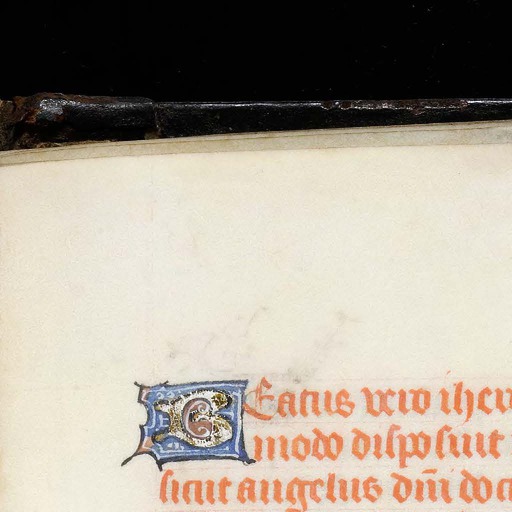 BEatus vero iher
modo disposuit
sicut angelus dñi doc